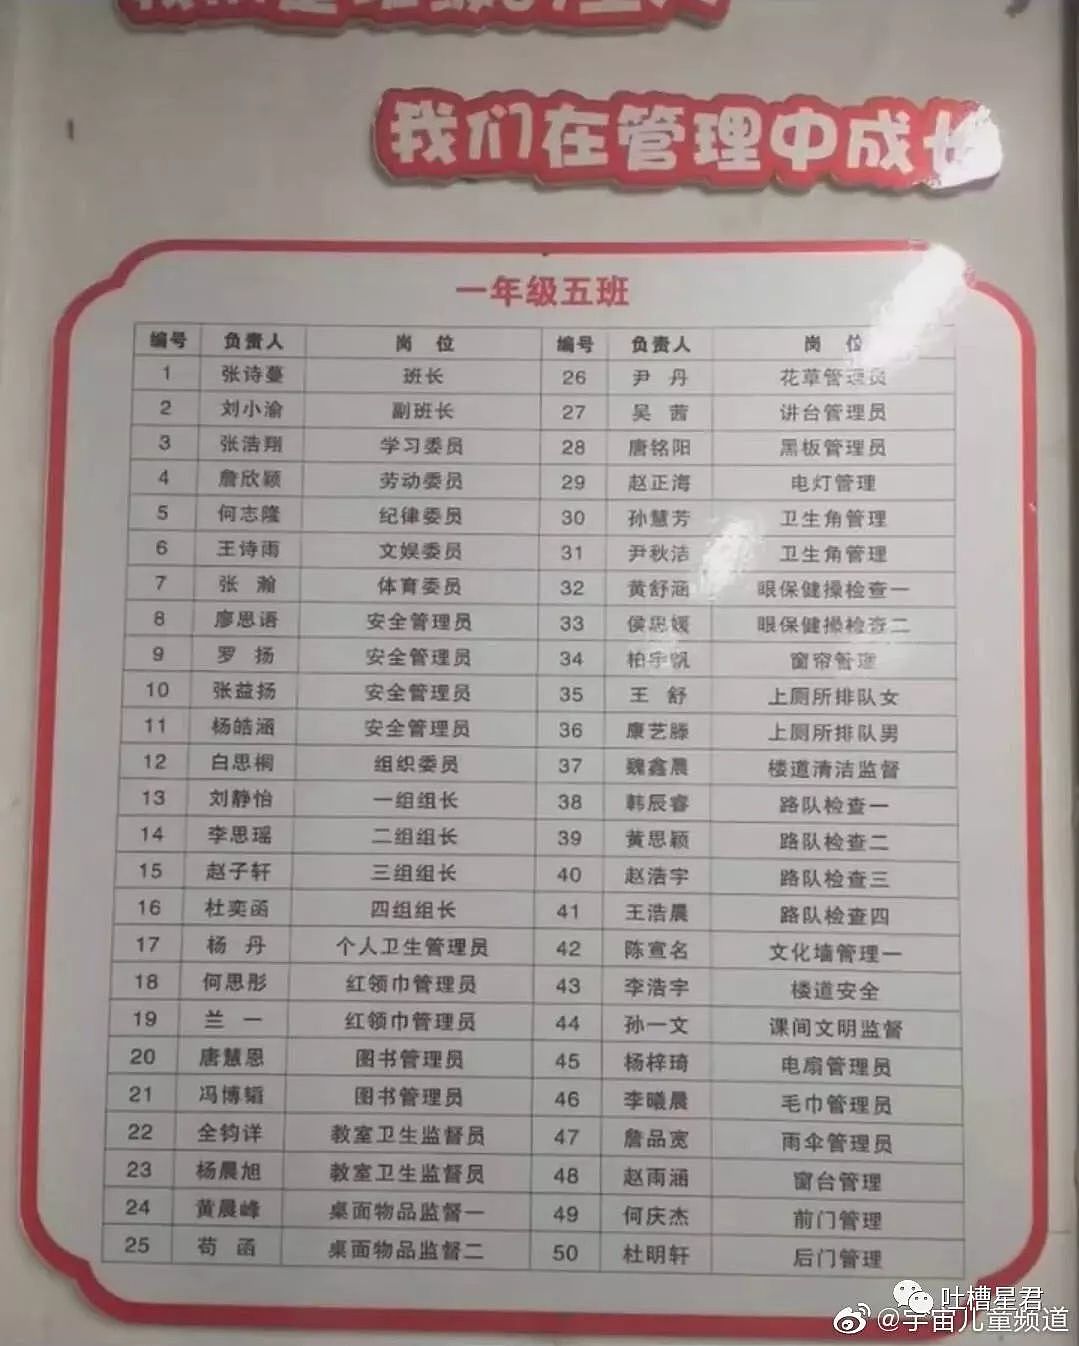 我们在管理中成长
一年级五班
编号 负责人 岗 位 编号 负责人 岗 位
1 张诗蔓 班长 26 尹 丹 花草管理员
2 刘小渝 副班长 27 吴 茜 讲台管理员
3 张浩翔 学习委员 28 唐铭阳 黑板管理员
4 詹欣颖 劳动委员 29 赵正海 电灯管理
5 何志隆 纪律委员 30 孙慧芳 卫生角管理
6 王诗雨 文娱委员 31 尹秋洁 卫生角管理
7 张 瀚 体育委员 32 黄舒涵 眼保健操检查一
8 廖思语 安全管理员 33 侯思媛 眼保健操检查二
9 罗 扬 安全管理员 34 柏宇帆 窗帘管理
10 张益扬 安全管理员 35 王 舒 上厕所排队女
11 杨皓涵 安全管理员 36 康艺滕 上厕所排队男
12 白思桐 组织委员 37 魏鑫晨 楼道清洁监督
13 刘静怡 一组组长 38 韩辰睿 路队检查一
14 李思瑶 二组组长 39 黄思颖 路队检查二
15 赵子轩 三组组长 40 赵浩宇 路队检查三
16 杜奕函 四组组长 41 王浩晨 路队检查四
17 杨 丹 个人卫生管理员 42 陈宣名 文化墙管理一
18 何思彤 红领巾管理员 43 李浩宇 楼道安全
19 兰 一 红领巾管理员 44 孙一文 课间文明监督
20 唐慧恩 图书管理员 45 杨梓琦 电扇管理员
21 冯博韬 图书管理员 46 李曦晨 毛巾管理员
22 全钧详 教室卫生监督员 47 詹品宽 雨伞管理员
23 杨晨旭 教室卫生监督员 48 赵雨涵 窗台管理
24 黄晨峰 桌面物品监督一 49 何庆杰 前门管理
25 苟 函 桌面物品监督二 50 杜明轩 后门管理
吐槽星君
@宇宙儿童频道